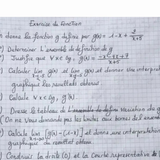 Exercice de fonction
donne la fonction g définie par g(x) = -x + 2/x+5
Déterminer l'ensemble de définition de g
Justifie que ∀x ∈ Dg, g(x) =
Calculer lim g(x) et lim g(x) et donner une interpréta
graphique les resultats obtenus
Calculer ∀x ∈ Dg, g'(x)
Dresse le tableau de
(On ne vous demande pas les limites aux bornes de
Calculer lim [g(x) - (-x)] et donne une interprétation
graphique du resultat obtenu.
Construire la droite (D) et la courbe représentative de